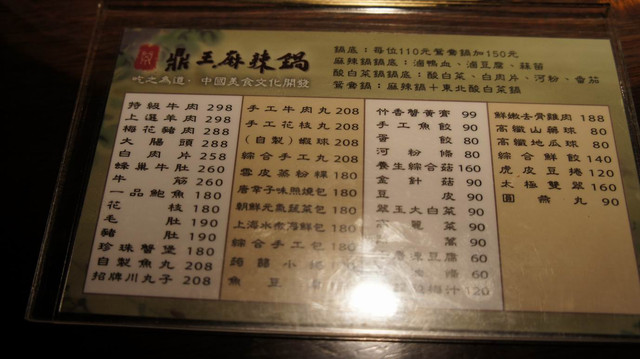 鼎王麻辣鍋
吃之為道、中國美食文化開發
鍋底：每位110元鴛鴦鍋加150元
麻辣鍋鍋底：滷鴨血、滷豆腐、蒜苗
酸白菜鍋鍋底：酸白菜、白肉片、河粉、番茄
鴛鴦鍋：麻辣鍋＋東北酸白菜鍋
特級牛肉 298
上選羊肉 298
梅花豬肉 288
大腸頭 288
白肉片 258
蜂巢牛肚 260
牛筋 260
一品鮑魚 180
花枝 180
毛肚 190
豬肚 190
珍珠蟹堡 180
自製魚丸 208
招牌川丸子 208
手工牛肉丸 208
手工花枝丸 208
（自製）蝦球 208
綜合手工丸 208
雪皮蒸粉粿 180
唐韋子味熱燒包 180
朝鮮元氣蔬菜包 180
上海水煮海鮮包 180
綜合手工包 180
180
魚豆
竹香蟹黃膏 99
手工魚餃 90
蛋餃 80
河粉條 80
養生綜合菇 160
金針菇 90
豆皮 90
翠玉大白菜 90
菜 90
萬 90
凍豆腐 60
條 60
梅汁 120
鮮嫩去骨雞肉 188
高纖山藥球 88
高纖地瓜球 80
綜合鮮餃 140
虎皮豆捲 120
太極雙翠 160
圓燕丸 90